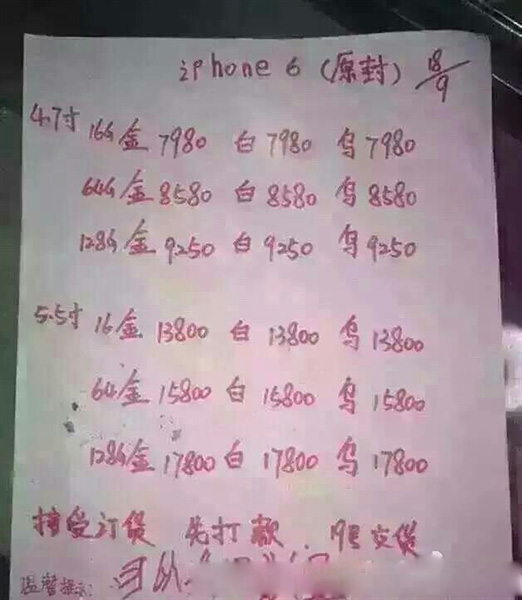 iPhone 6 (原封) 18/9
4.7寸 16G 金 7980 白 7980 乌 7980
64G 金 8580 白 8580 乌 8580
128G 金 9250 白 9250 乌 9250
5.5寸 16 金 13800 白 13800 乌 13800
64 金 15800 白 15800 乌 15800
128G 金 17800 白 17800 乌 17800
接受订货 先打款 19号交货
温馨提示: